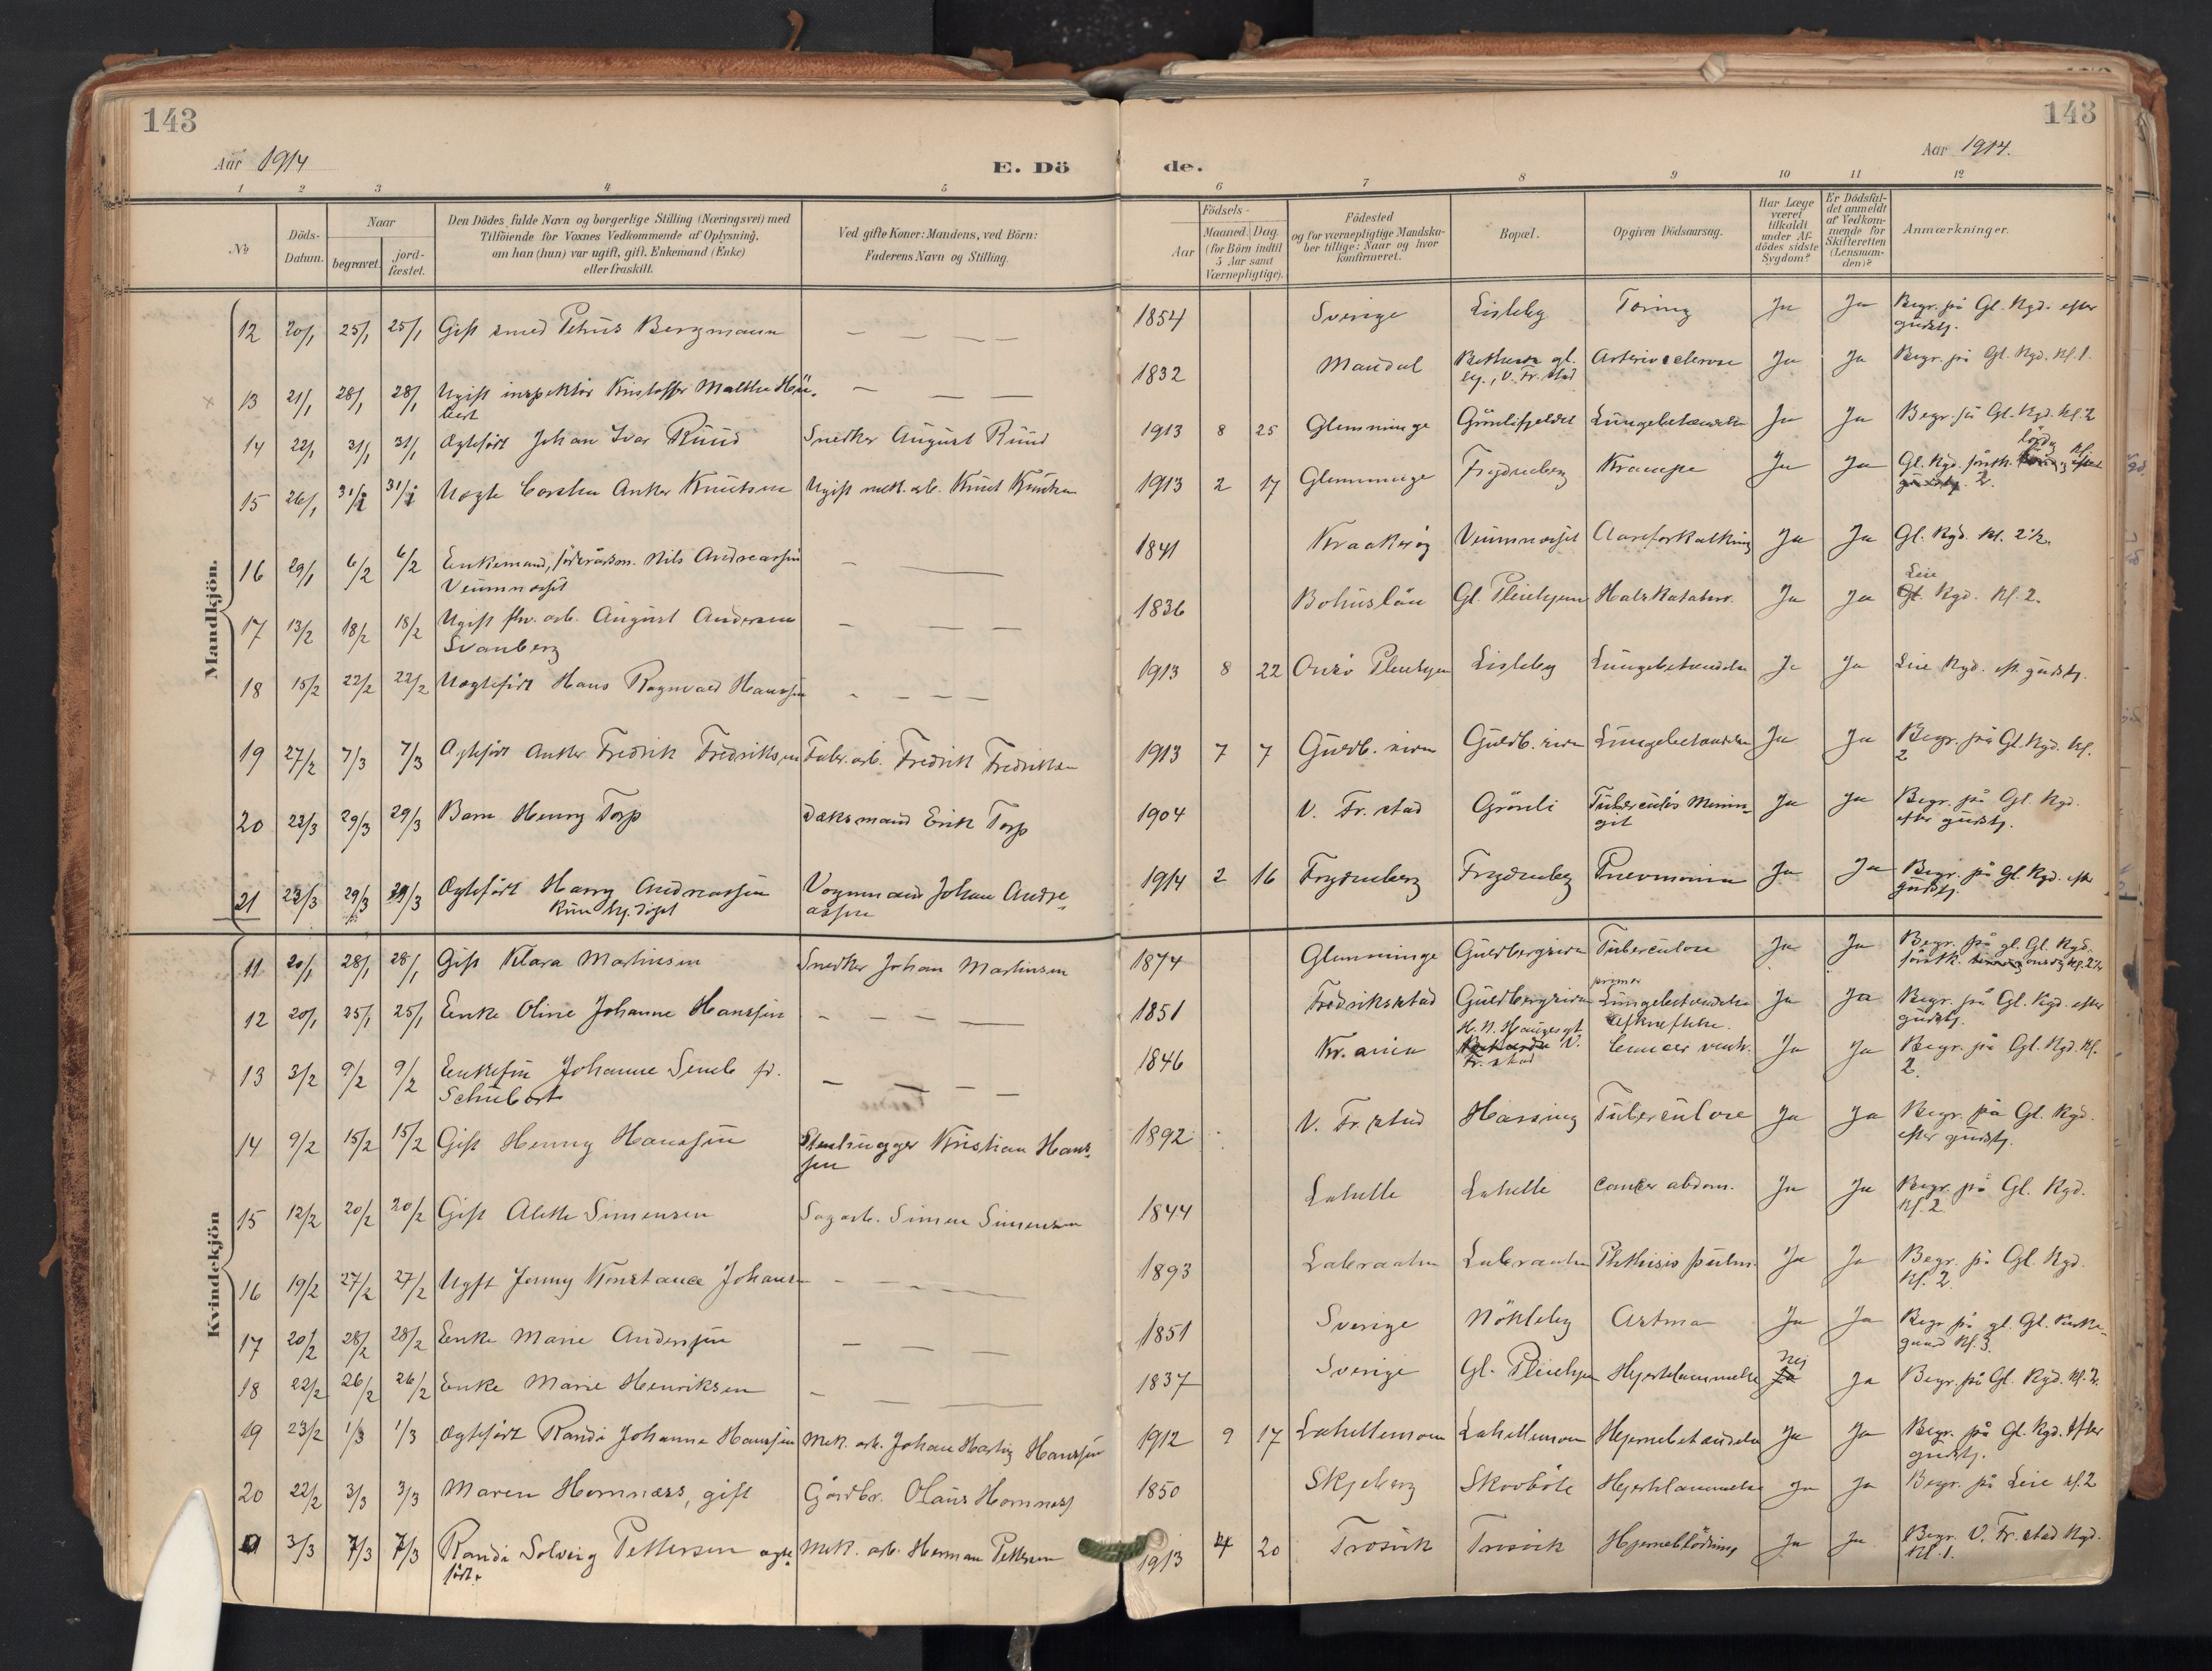 143
143
Aar 1914
E. Dö
de.
Aar 1914.
1 2 3 4 5 6 7 8 9 10 11 12
No
Döds-
Datum.
Naar
begravet.
jord-
fæstet.
Den Dödes fulde Navn og borgerlige Stilling (Næringsvei) med
Tilföiende for Voxnes Vedkommende af Oplysning,
om han (hun) var ugift, gift, Enkemand (Enke)
eller fraskilt.
Ved gifte Koner: Mandens, ved Börn:
Faderens Navn og Stilling.
Födsels-
Aar
Maaned. Dag.
(for Börn indtil
5 Aar samt
Værnepligtige).
Födested
og for værnepligtige Mandska-
ber tillige: Naar og hvor
konfirmeret.
Bopæl.
Opgiven Dödsaarsag.
Har Læge
været
tilkaldt
under Af-
dödes sidste
Sygdom?
Er Dödsfal-
det anmeldt
af Vedkom-
mende for
Skifteretten
(Lensman-
den)?
Anmærkninger.
Mandkjön.
12 20/1 25/1 25/1 Gift smed Petrus Bergmann — — — — 1854 Sverige Lisleby Ja Ja Begr. på Gl. Kgd. efter
gudstj.
13 21/1 28/1 28/1 Ugift inspektør Kristoffer Malthe Hü-
bert — — — 1832 Mandal gl.
by., V. Fr.stad Arteriosclerose Ja Ja Begr. på Gl. Kgd. Kl. 1.
14 22/1 31/1 31/1 Ægteført Johan Ivar Ruud Snedker August Ruud 1913 8 25 Glemminge Grønlifjeldet Lungebetændelse Ja Ja Begr. på Gl. Kgd. Kl. 2
15 26/1 31/1 31/1 Uægte Anker Knutsen Ugift mek. arb. Knut Knutsen 1913 2 17 Glemminge Frydenberg Krampe Ja Ja Gl. Kgd. lørdag Kl.
2.
16 29/1 6/2 6/2 Enkemand, Nils Andreassen
Veumnesset — — 1841 Kraakerøy Veumnesset Aareforkalkning Ja Ja Gl. Kgd. Kl. 2½.
17 13/2 18/2 18/2 Ugift arb. August Andersen
Svanberg — — — 1836 Bohuslän Gl. Pleiehjem Halskatahr. Ja Ja Leie
Kgd. Kl. 2.
18 15/2 22/2 22/2 Uægteført Hans Ragnvald Hanssen — — — — 1913 8 22 Onsø Pleiehjem Lisleby Lungebetændelse Ja Ja Leie Kgd. eft. gudstj.
19 27/2 7/3 7/3 Ægteført Anker Fredrik Fredriksen Fabr. arb. Fredrik Fredriksen 1913 7 7 Guldb. siden Guldb. siden Lungebetændelse Ja Ja Begr. på Gl. Kgd. Kl.
2
20 22/3 29/3 29/3 Barn Henry Torp Dæksmand Erik Torp 1904 V. Fr.stad Grønli Tuberculøs Menin-
git Ja Ja Begr. på Gl. Kgd.
efter gudstj.
21 23/3 29/3 29/3 Ægteført Harry Andreassen
Kun hj. døpt Vognmand Johan Andre-
assen 1914 2 16 Frydenberg Frydenberg Pnevmonia Ja Ja Begr. på Gl. Kgd. efter
gudstj.
Kvindekjön
11 20/1 28/1 28/1 Gift Klara Martinsen Snedker Johan Martinsen 1874 Glemminge Guldbergsiden Tuberculose Ja Ja Begr. på gl. Gl. Kgd.
onsdag Kl. 2½
12 20/1 25/1 25/1 Enke Oline Johanne Hanssen — — — — 1851 Fredriksstad Guldbergsiden primær
Lungebetændelse Ja Ja Begr. på Gl. Kgd. efter
gudstj.
13 3/2 9/2 9/2 Enkefru Johanne Semb fd.
Schubert — — — 1846 Kr.ania H. N. Haugesgt.
V.
Fr.stad Afkræftelse.
Cancer ventr. Ja Ja Begr. på Gl. Kgd. Kl.
2.
14 9/2 15/2 15/2 Gift Henny Hanssen Stenhugger Kristian Hans-
sen 1892 V. Fr.stad Hassing Tuberculose Ja Ja Begr. på Gl. Kgd.
efter gudstj.
15 12/2 20/2 20/2 Gift Alette Simensen Sagarb. Simen Simensen 1844 Lahelle Lahelle Cancer abdom. Ja Ja Begr. på Gl. Kgd.
Kl. 2
16 19/2 27/2 27/2 Ugift Jenny Konstance Johansen — — — — 1893 Labraaten Labraaten Phthisis pulm. Ja Ja Begr. på Gl. Kgd.
Kl. 2
17 20/2 28/2 28/2 Enke Marie Anderssen — — — — 1851 Sverige Nökleby Astma Ja Ja Begr. på gl. Gl. Kirke-
gaard Kl. 3.
18 22/2 26/2 26/2 Enke Marie Henriksen — — — 1837 Sverige Gl. Pleiehjem Hjertelammelse Nej
Ja Ja Begr. på Gl. Kgd. Kl. 2.
19 23/2 1/3 1/3 Ægteført Randi Johanne Hanssen Mek. arb. Johan Hartvig Hanssen 1912 9 17 Lahellemoen Lahellemoen Hjernebetændelse Ja Ja Begr. på Gl. Kgd. efter
gudstj.
20 22/2 3/3 3/3 Maren Hornnæss, gift Gårdbr. Olaus Hornnæss 1850 Skjeberg Skovbøle Hjertelammelse Ja Ja Begr. på Leie kl. 2
3/3 7/3 7/3 Randi Solveig Pettersen ægte-
født. Mek. arb. Herman Pettersen 1913 4 20 Trosvik Trosvik Hjerneblødning Ja Ja Begr. V. Fr.stad Kgd.
Kl. 1.